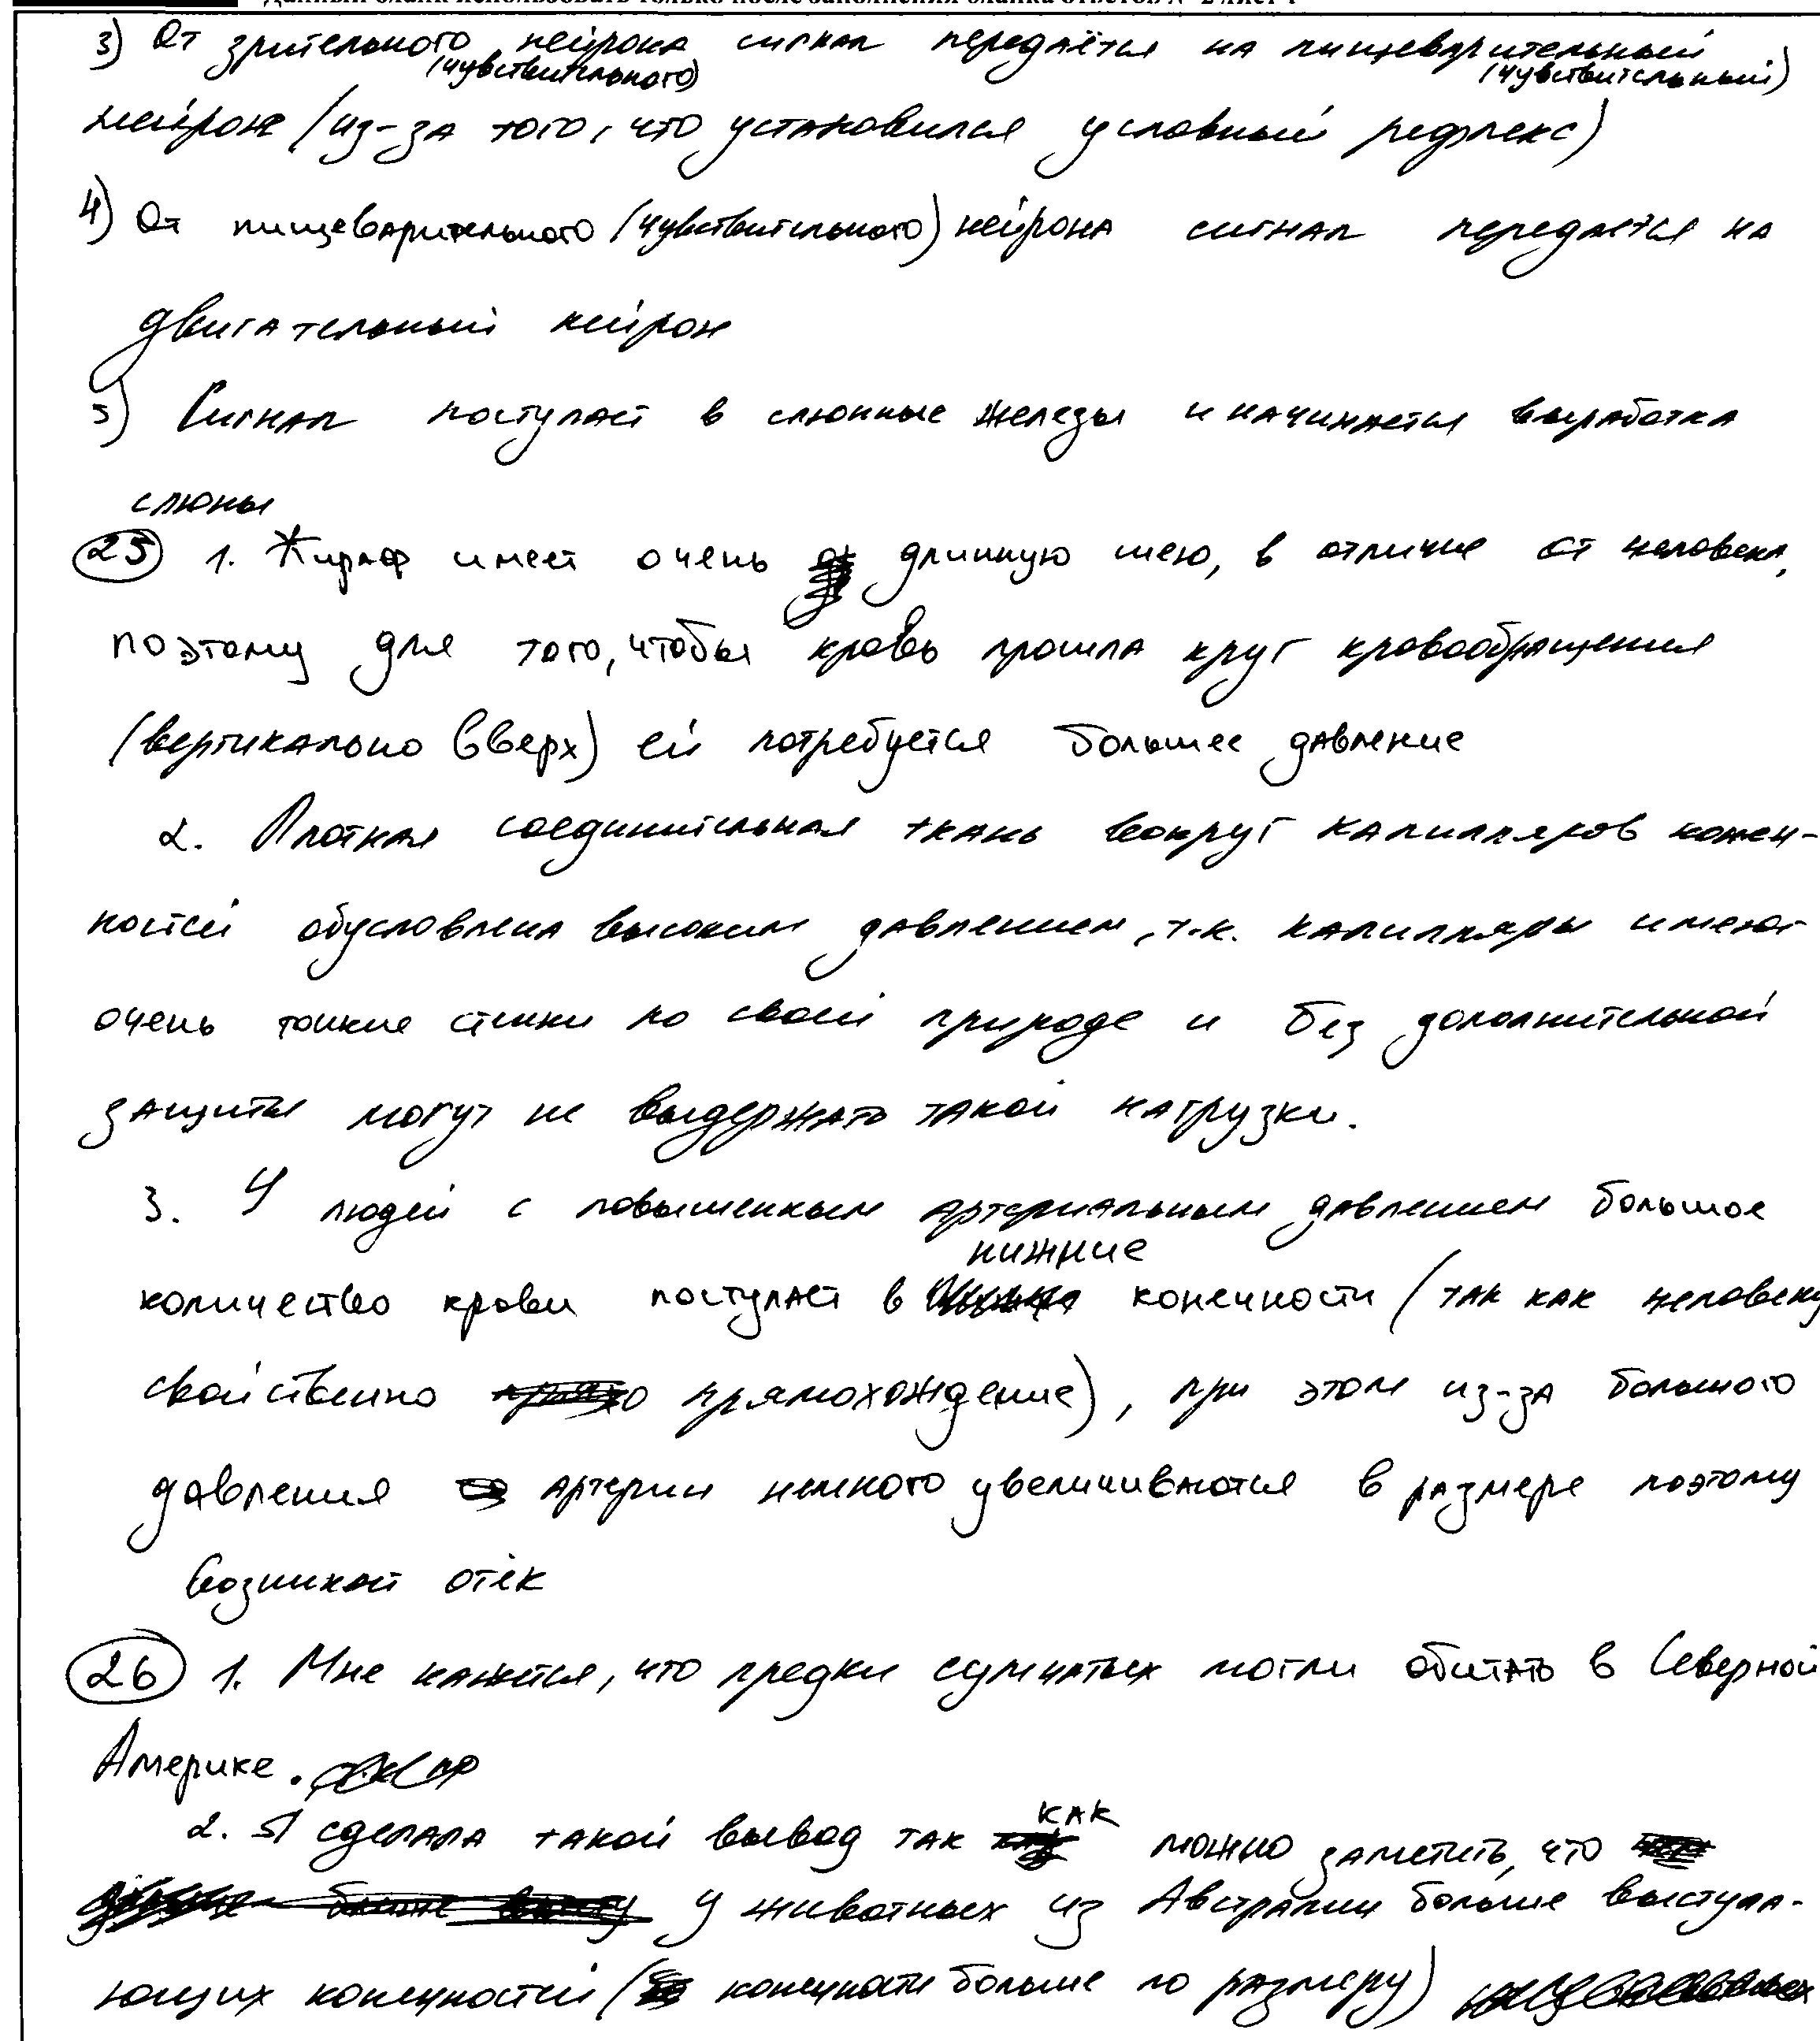 Данный бланк использовать только после заполнения бланка ответов № 2 лист 1
3) От зрительного нейрона сигнал передаётся на пищеварительный
(чувствительного) (чувствительный)
нейрон (из-за того, что установился условный рефлекс)
4) От пищеварительного (чувствительного) нейрона сигнал передается на
двигательный нейрон
5) Сигнал поступает в слюнные железы и начинается выработка
слюны
25 1. Жираф имеет очень длинную шею, в отличие от человека,
поэтому для того, чтобы кровь прошла круг кровообращения
(вертикально вверх) ей потребуется большее давление
2. Плотная соединительная ткань вокруг капилляров конеч-
ностей обусловлена высоким давлением, т.к. капилляры имеют
очень тонкие стенки по своей природе и без дополнительной
защиты могут не выдержать такой нагрузки.
3. У людей с повышенным артериальным давлением большое
нижние
количество крови поступает в конечности (так как человеку
свойственно прямохождение), при этом из-за большого
давления артерии немного увеличиваются в размере поэтому
возникает отёк
26 1. Мне кажется, что предки сумчатых могли обитать в Северной
Америке.
как
2. Я сделала такой вывод так можно заметить, что
у животных из Австралии больше выступа-
ющих конечностей (конечности больше по размеру)